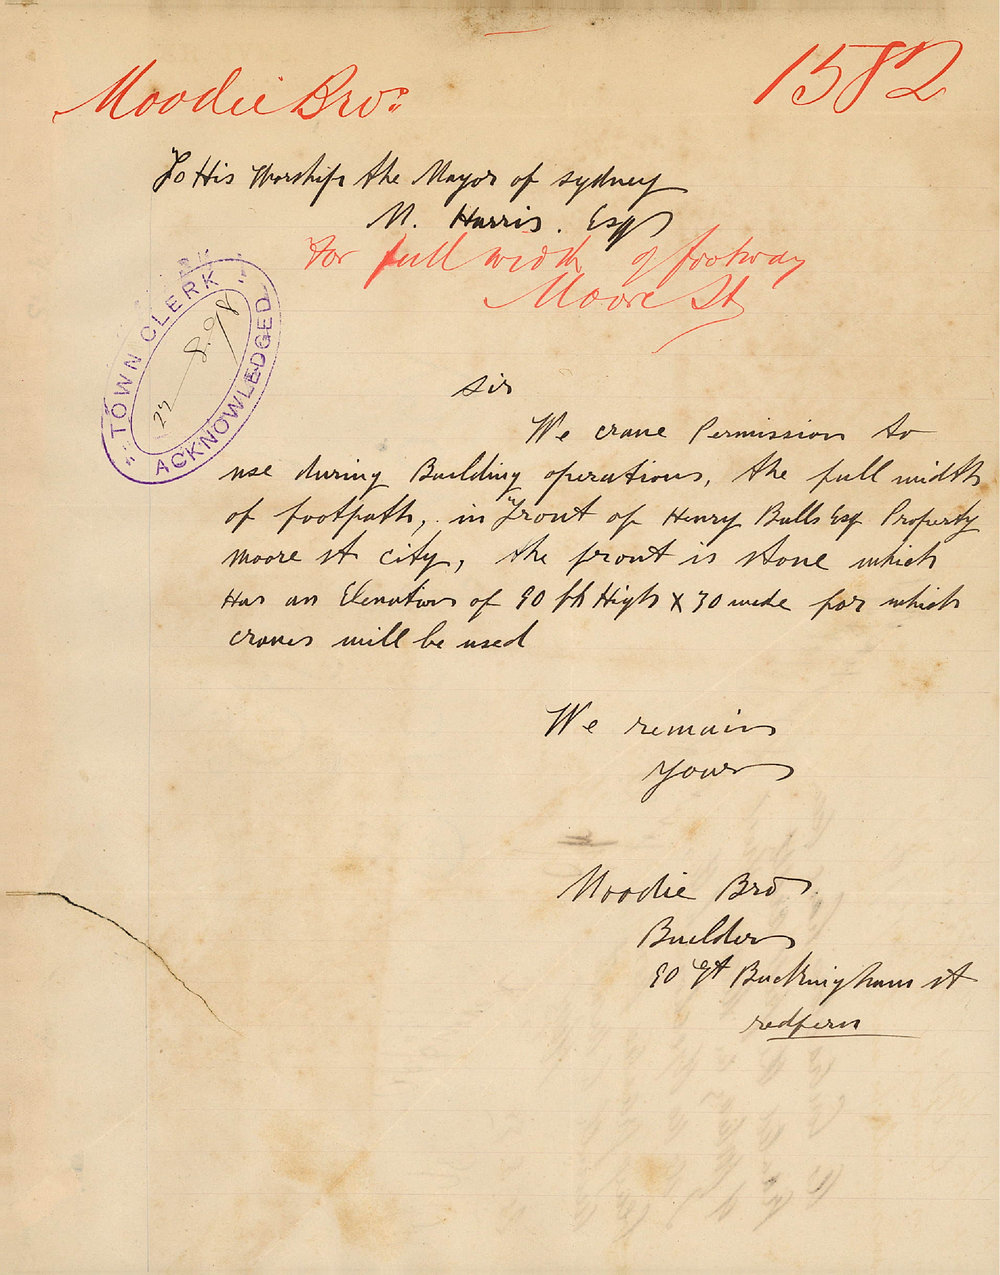 Moodie Bros
1582
To His Worship the Mayor of Sydney
M. Harris. Esq
For full width of footway
Moore St
TOWN CLERK
27 8.98
ACKNOWLEDGED
Sir
We crave Permission to
use during Building operations, the full width
of footpath, in Front of Henry Bulls Esq Property
Moore st city, the front is stone which
Has an Elevation of 90 ft High x 30 wide for which
cranes will be used
We remain
Yours
Moodie Bros.
Builders
90 Gt Buckingham st
redfern